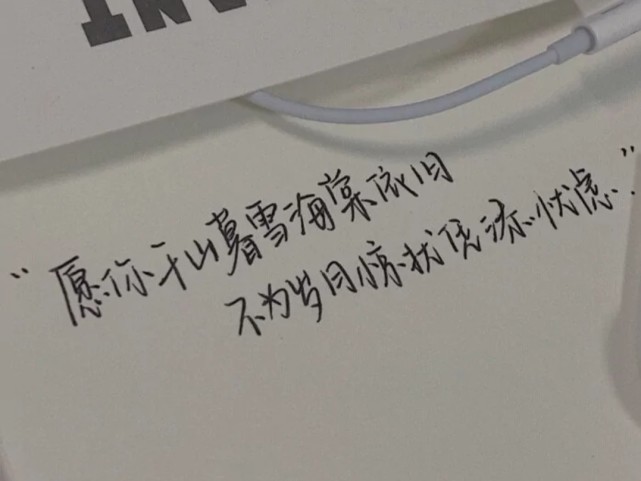 ANT
“愿你千山暮雪海棠依旧
不为岁月惊扰凭添忧虑.”